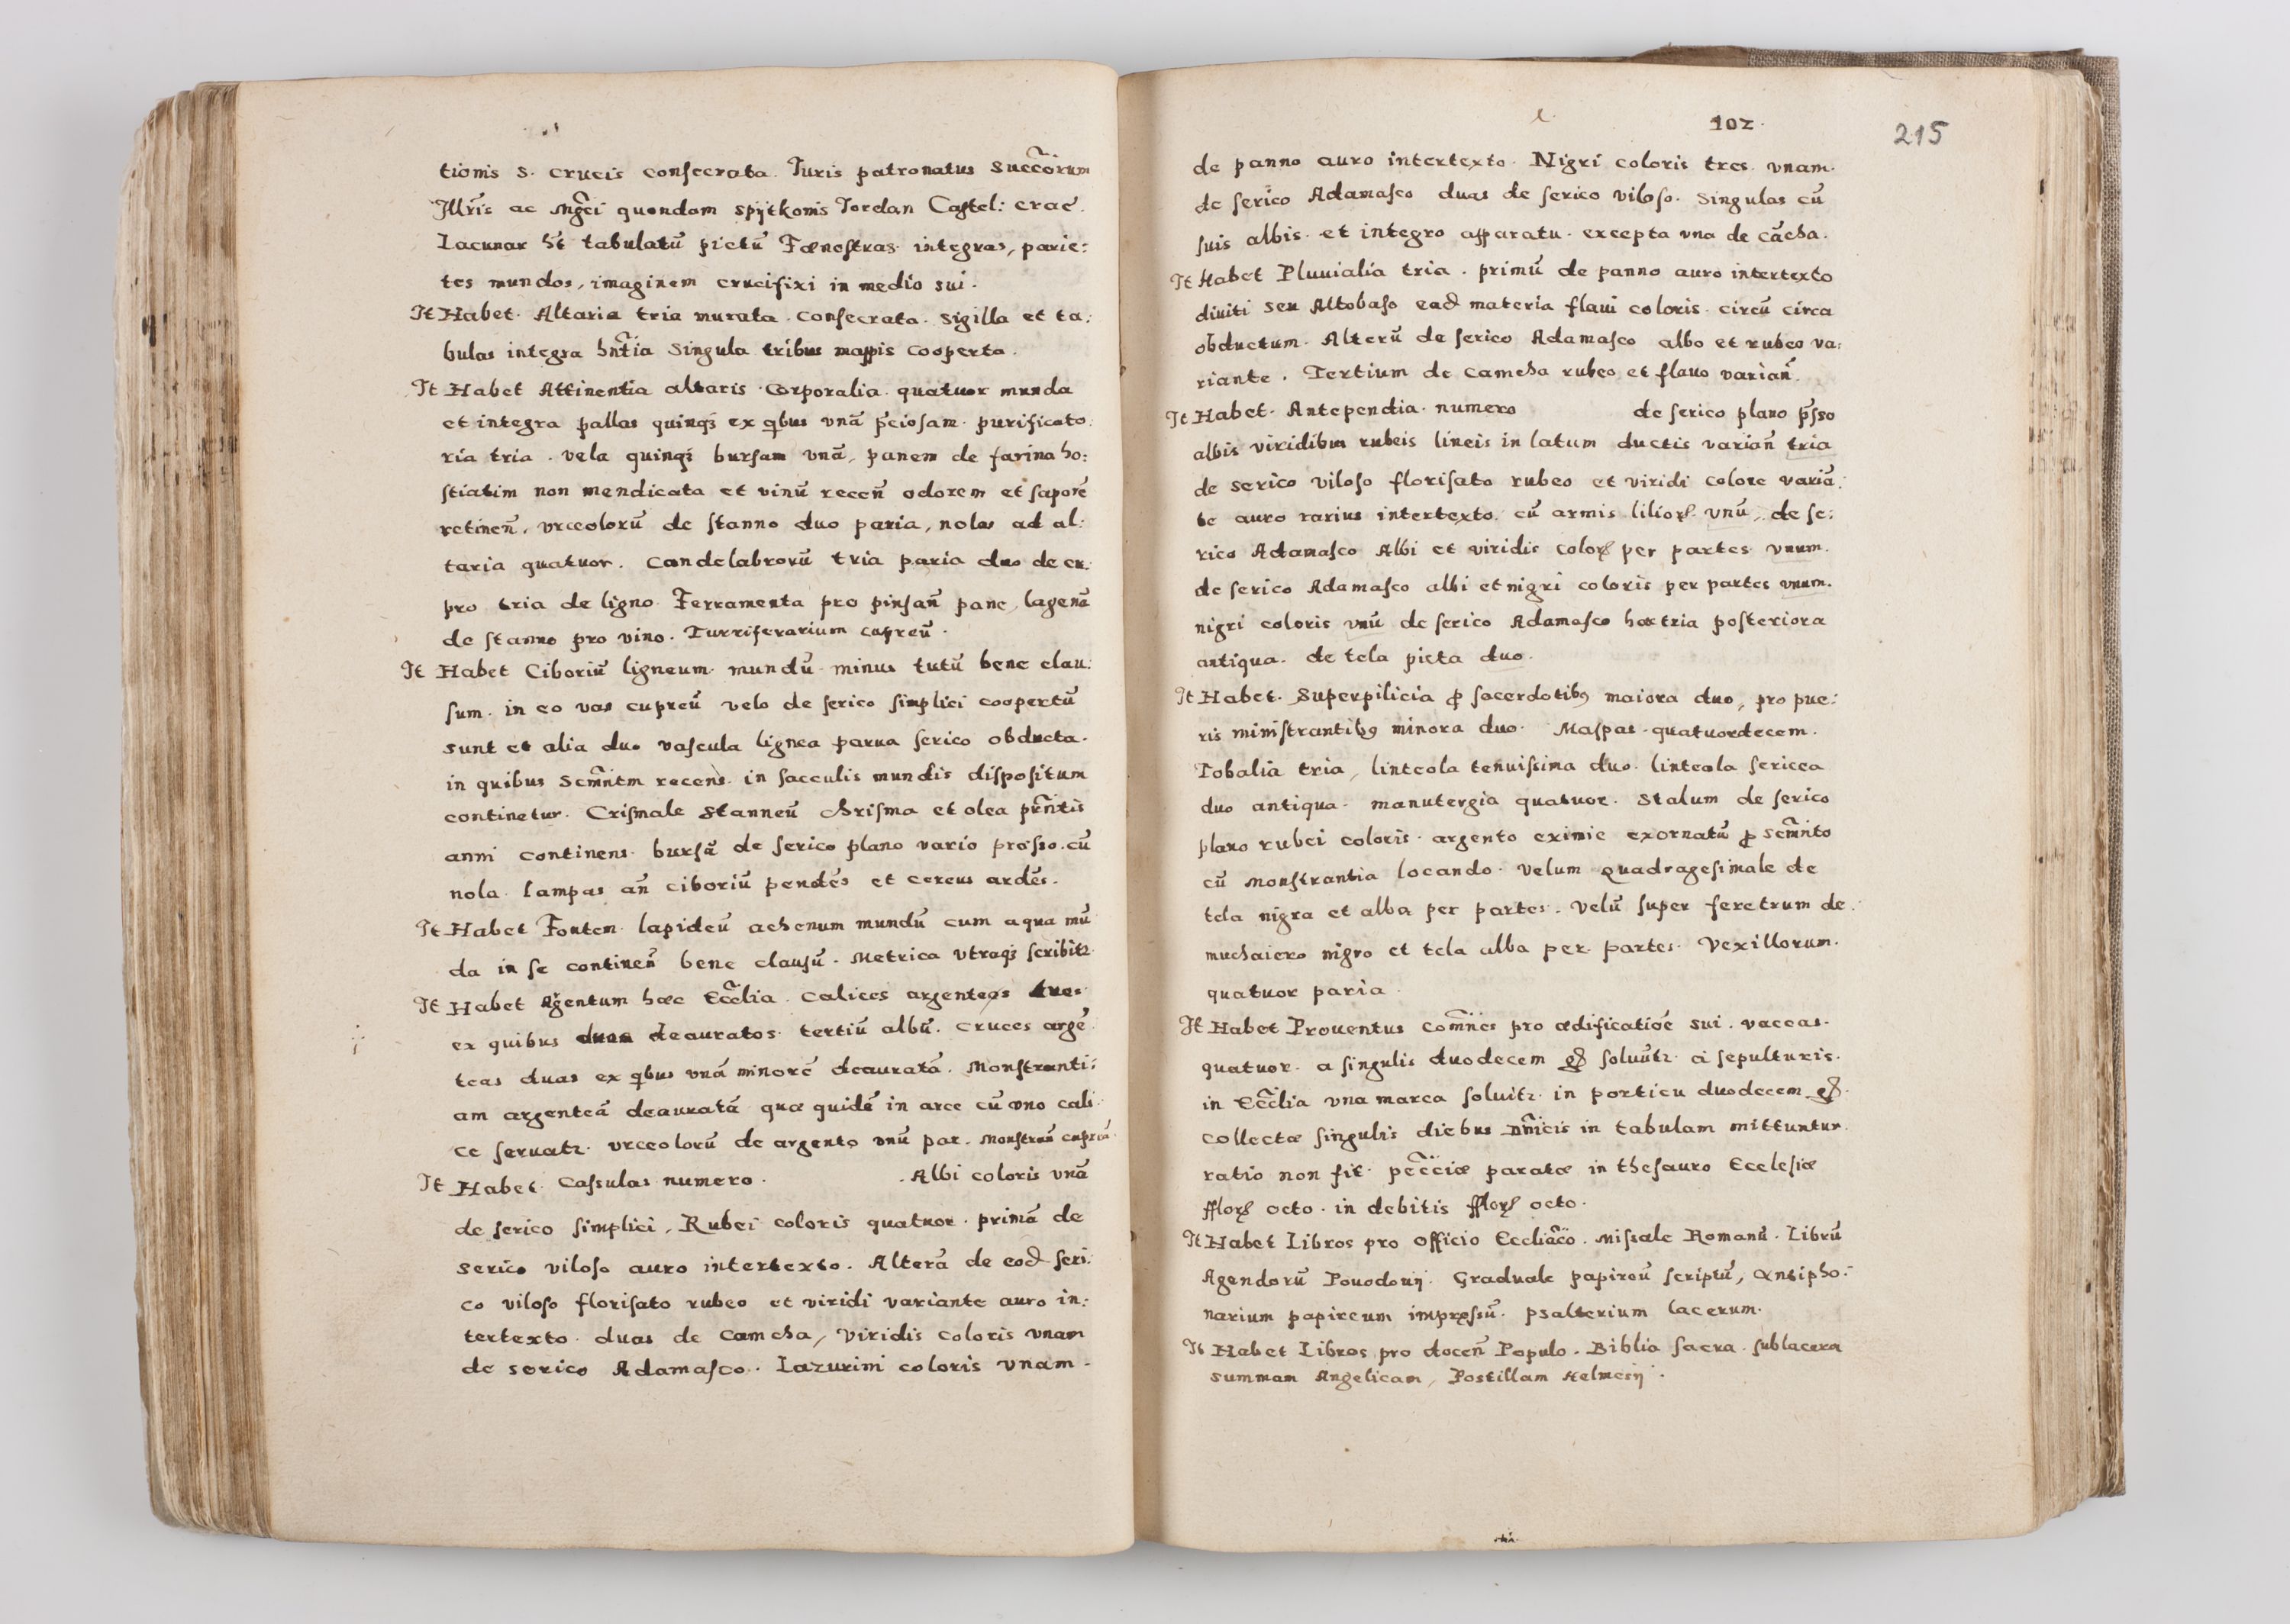 tionis S. crucis consecrata. Iuris patronatus succõrum
Illrĩs ac Mgc̃i quondam Spÿtkonis Iordan Castel: crac̃.
Lacunar ht̃ tabulatũ pictũ Fænestras integras, parie:
tes mundos, imaginem crucifixi in medio sui.
It Habet Altaria tria murata. consecrata. sigilla et ta:
bulas integra hñtia singula tribus mappis cooperta.
It Habet Attinentia altaris. Corporalia quatuor munda
et integra pallas quinqȝ ex qbus vnã p̃ciosam. purificato:
ria tria. vela quinqȝ bursam vnã, panem de farina ho:
stiatim non mendicata et vinũ receñ odorem et saporẽ
retineñ. vrceolorũ de stanno duo paria, nolas ad al:
taria quatuor. candelabrorũ tria paria duo de cu:
pro tria de ligno. Ferramenta pro pinsañ pane, lagenã
de stanno pro vino. Turriferarium cupreũ.
It Habet Ciboriũ ligneum mundũ minus tutũ bene clau:
sum. in eo vas cupreũ velo de serico simplici coopertũ
sunt et alia duo vascula lignea parua serico obducta.
in quibus scm̃ntm recens in sacculis mundis dispositum
continetur. Crismale stanneũ chrisma et olea prñtis
anni continens. bursã de serico plano vario prosso. cũ
nola. lampas añ ciboriũ pendẽs et cereus ardẽs.
It Habet Fontem lapideũ achenum mundũ cum aqua mũ
da in se contineñ bene clausũ. Metrica vtraqȝ scribitr
It Habet Argentum hæc Eccl̃ia. calices argenteos tres
ex quibus duos deauratos. tertiũ albũ. cruces argẽ
teas duas ex qbus vnã minorẽ deauratã. Monstranti:
am argenteã deauratã quæ quidẽ in arce cũ vno cali:
ce seruatr. vrceolorũ de argento vnũ par. Monstrañ cupreã
It Habet Cassulas numero. . Albi coloris vnã
de serico simplici, Rubei coloris quatuor. primã de
serico viloso auro intertexto. Alterã de eod seri:
co viloso florisato rubeo et viridi variante auro in:
tertexto. duas de Camcha, Viridis coloris vnam
de serico Adamasco. Lazurini coloris vnam.
102.
215
de panno auro intertexto. Nigri coloris tres. vnam.
de serico Adamasco duas de serico viloso. singulas cũ
suis albis. et integro apparatu. excepta vna de cãcha.
It Habet Pluuialia tria. primũ de panno auro intertexto
diuiti seu Altobaso ead materia flaui coloris. circũ circa
obductum. Alterũ de serico Adamasco albo et rubeo va:
riante. Tertium de camcha rubeo et flauo variañ.
It Habet. Antependia. numero de serico plano p̃sso
albis viridibus rubeis lineis in latum ductis variañ tria
de serico viloso florisato rubeo et viridi colore variã:
te auro rarius intertexto. cũ armis lilioꝝ vnũ, de se:
rico Adamasco Albi et viridis coloꝝ per partes vnum.
de serico Adamasco albi et nigri coloris per partes vnum.
nigri coloris vnũ de serico Adamasco hæc tria posteriora
antiqua. de tela picta duo.
It Habet. Superpilicia ꝓ sacerdotibꝯ maiora duo, pro pue:
ris ministrantibꝯ minora duo. Mappas quatuordecem.
Tobalia tria, linteola tenuissima duo. linteola sericea
duo antiqua. manutergia quatuor. Stalum de serico
plano rubei coloris. argento eximie exornatũ ꝓ scm̃nto
cũ Monstrantia locando. Velum quadragesimale de
tela nigra et alba per partes. Velũ super feretrum de
muchaiero nigro et tela alba per partes. Vexillorum.
quatuor paria.
It Habet Prouentus com̃nes pro ædificatiõe sui. vaccas.
quatuor. a singulis duodecem gꝝ soluũtr. a sepulturis.
in Eccl̃ia vna marca soluitr. in porticu duodecem gꝝ.
Collectæ singulis diebus Dñicis in tabulam mittuntur.
ratio non fit. pecc̃iæ paratæ in thesauro Ecclesiæ
ffloꝝ octo. in debitis ffloꝝ octo.
It Habet Libros pro officio Eccliãco. Missale Romanũ. Librũ
Agendorũ Pouodouij. Graduale papireũ scriptũ, Antipho:
narium papireum impressũ. psalterium lacerum.
It Habet Libros pro doceñ Populo. Biblia sacra. sublacera
summam Angelicam, Postillam Helmesij.